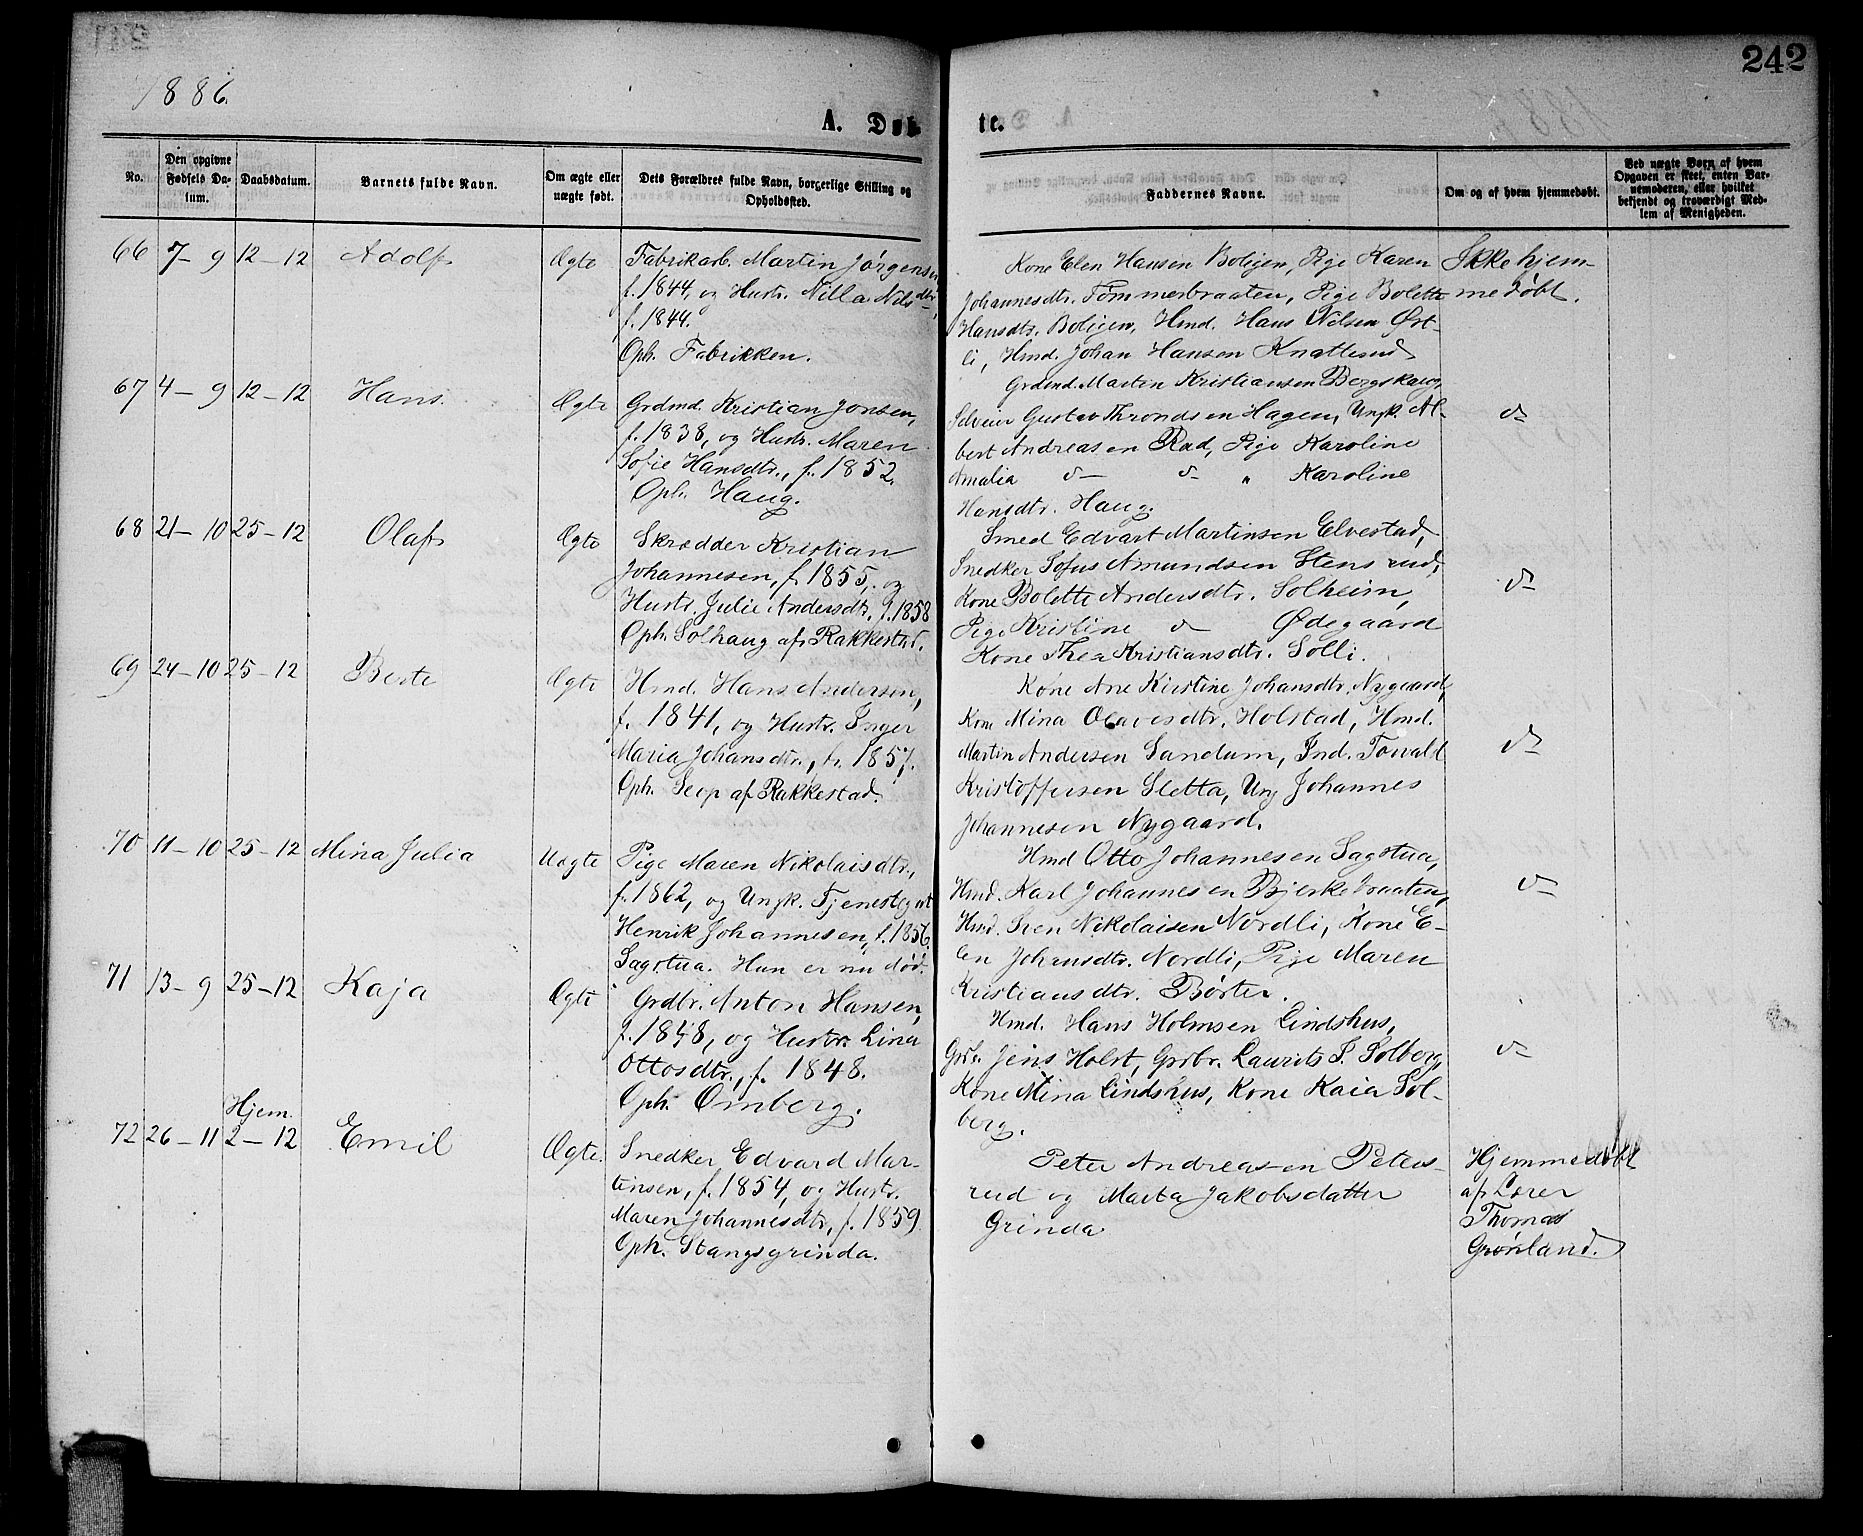 242
1886.
A. Døb-
te.
No.
Den opgivne Fødsels Datum.
Daabsdatum.
Barnets fulde Navn.
Om ægte eller uægte født.
Dets Forældres fulde Navn, borgerlige Stilling og Opholdssted.
Faddernes Navne.
Om og af hvem hjemmedøbt.
Ved uægte Børn af hvem Opgaven er skeet, enten Barnemoderen, eller hvilket bekjendt og troværdigt Medlem af Menigheden.
66 7-9 12-12 Adolf Ægte
Fabrikarb. Martin Jørgensen
f. 1844, og Hustr. Nilla Nilsdtr.,
f. 1844.
Oph. Fabrikken.
Kone Elen Hansen Boligen, Pige Karen
Johannesdtr. Tømmerbraaten, Pige Bolette
Hansdtr. Boligen, Hmd. Hans Nilsen Øst-
li, Hmd. Johan Hansen Knatterud
Ikke hjem-
medøbt.
67 4-9 12-12 Hans. Ægte
Grdmd. Kristian Jonsen,
f. 1838, og Hustr. Maren
Sofie Hansdtr., f. 1852.
Oph. Haug.
Grdmd. Marten Kristiansen Bergskaug,
Selveier Gustav Throndsen Hagen, Ungk. Al-
bert Andreasen Rud, Pige Karoline
Amalia do do " Karoline
Hansdtr. Haug.
do
68 21-10 25-12 Olaf Ægte
Skrædder Kristian
Johannesen, f. 1855, og
Hustr. Julie Andersdtr. f. 1858
Oph. Solhaug af Rakkestad.
Smed Edvart Martinsen Elvestad,
Snedker Sofus Amundsen Stensrud,
Kone Bolette Andersdtr. Solheim,
Pige Kristine do Ødegaard
Kone Thea Kristiansdtr. Solli.
do
69 24-10 25-12 Berte Ægte
Hmd. Hans Andersen,
f. 1841, og Hustr. Inger
Maria Johansdtr., f. 1857.
Oph. Seop af Rakkestad.
Kone Ane Kirstine Johansdtr. Nygaard,
Kone Mina Olavesdtr. Holstad, Hmd.
Martin Andersen Sandum, Ind. Torvald
Kristoffersen Sletta, Ung Johannes
Johannesen Nygaard.
do
70 11-10 25-12 Mina Julia Uægte
Pige Maren Nikolaisdtr.,
f. 1862, og Ungk. Tjenestegut
Henrik Johannesen, f. 1856.
Sagstua. Hun er nu død.
Hmd Otto Johannesen Sagstua,
Hmd. Karl Johannesen Bjerkebraaten,
Hmd. Sven Nikolaisen Nordli, Kone E-
len Johansdtr. Nordli, Pige Maren
Kristiansdtr. Børter.
do
71 13-9 25-12 Kaja Ægte
Grdbr. Anton Hansen,
f. 1848, og Hustr. Lina
Ottosdtr., f. 1848.
Oph. Omberg.
Hmd. Hans Holmsen Lindshus,
Grdb. Jens Holst, Grdbr. Laurits S. Solberg,
Kone Mina Lindshus, Kone Kaia Sol-
berg.
do
Hjem.
72 26-11 2-12 Emil Ægte.
Snedker Edvard Mar-
tinsen, f. 1854, og Hustr.
Maren Johannesdtr, f. 1859.
Oph. Stangsgrinda.
Peter Andreasen Peters-
rud og Marta Jakobsdatter
Grinda
Hjemmedøbt
af Lærer
Thomas
Grønland.